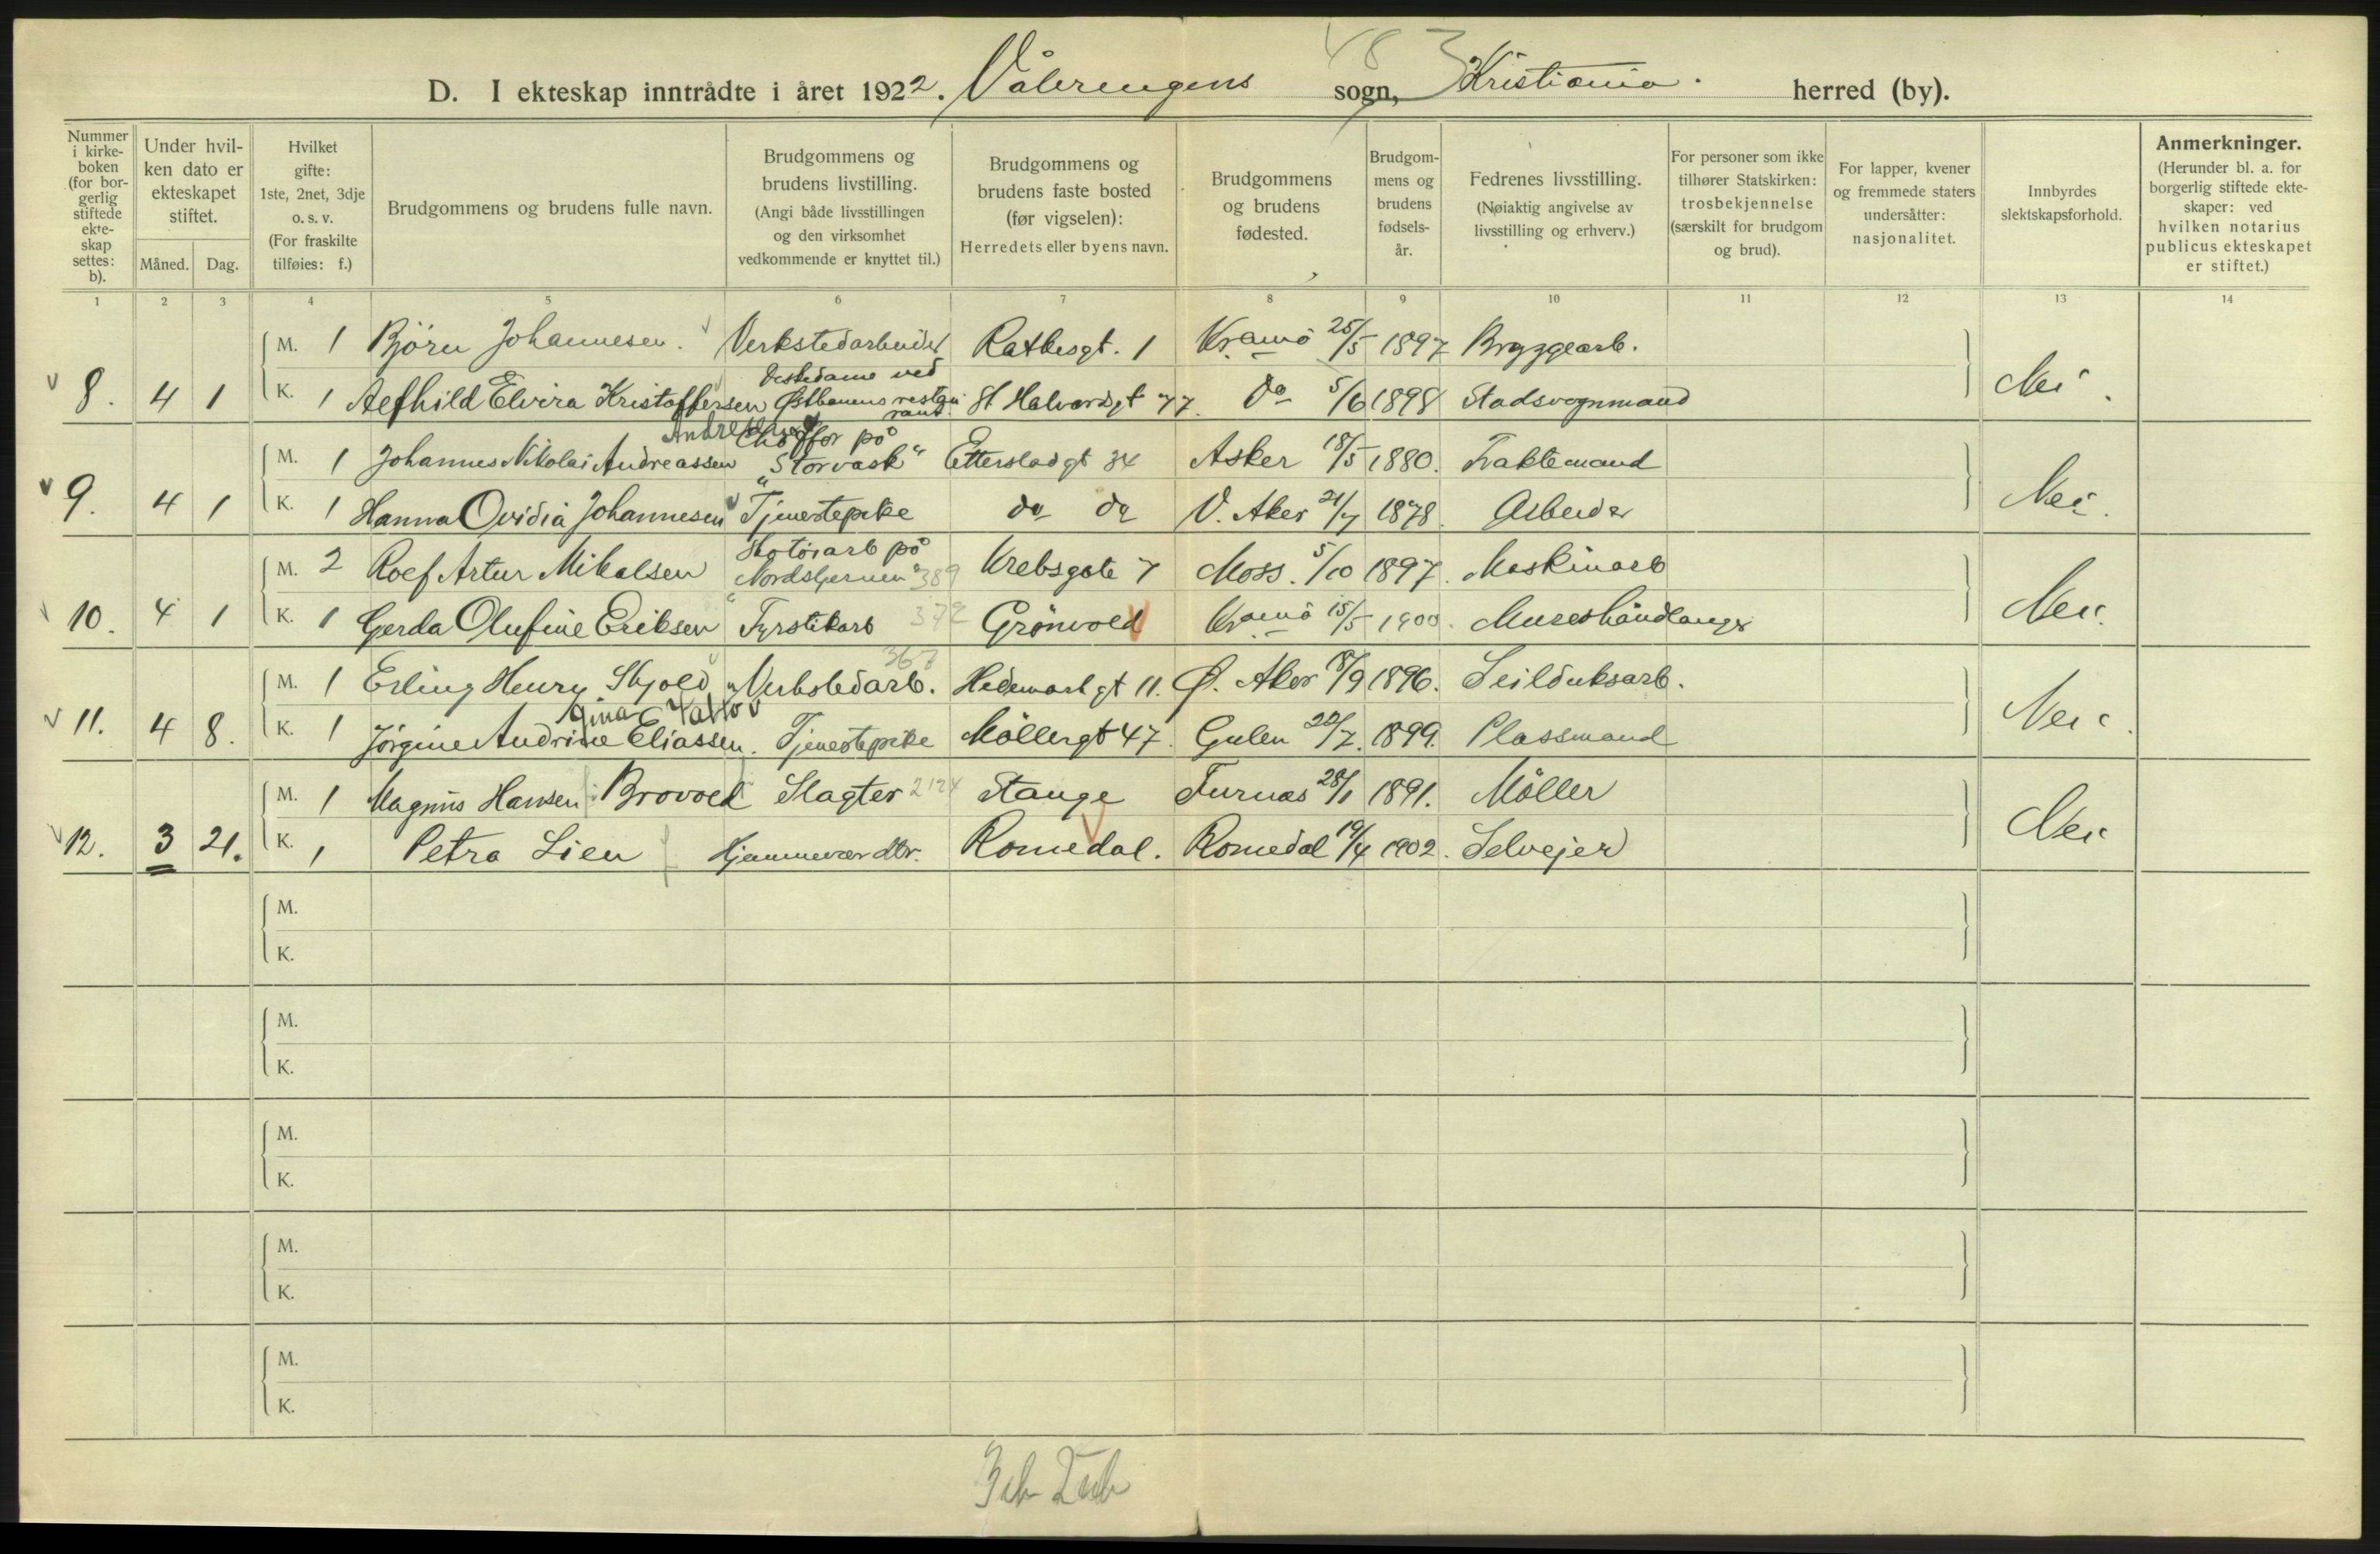 48 3
D. I ekteskap inntrådte i året 1922. Vålerengens sogn, Kristiania. herred (by).
Nummer i kirke- boken (for bor- gerlig stiftede ekte- skap settes: b).
Under hvil- ken dato er ekteskapet stiftet.
Måned. Dag.
Hvilket gifte: 1ste, 2net, 3dje o. s. v. (For fraskilte tilføies: f.)
Brudgommens og brudens fulle navn.
Brudgommens og brudens livstilling. (Angi både livsstillingen og den virksomhet vedkommende er knyttet til.)
Brudgommens og brudens faste bosted (før vigselen): Herredets eller byens navn.
Brudgommens og brudens fødested.
Brudgom- mens og brudens fødsels- år.
Fedrenes livsstilling. (Nøiaktig angivelse av livsstilling og erhverv.)
For personer som ikke tilhører Statskirken: trosbekjennelse (særskilt for brudgom og brud).
For lapper, kvener og fremmede staters undersåtter: nasjonalitet.
Innbyrdes slektskapsforhold.
Anmerkninger. (Herunder bl. a. for borgerlig stiftede ekte- skaper: ved hvilken notarius publicus ekteskapet er stiftet.)
1 2 3 4 5 6 7 8 9 10 11 12 13 14
M. 1 Björn Johannesen. Verkstedarbeider Ratkesgt. 1 Kr.ania 25/5 1897 Bryggearb.
8. 4 1 Nei.
K. 1 Alfhild Elvira Kristoffersen Diskedame ved Østbanens restau rant. St Halvardsgt 77. do 5/6 1898 Stadsvognmand
Andreassen
M. 1 Johannes Nikolai Andreassen Chöffør på "Storvask" Etterstadgt 34 Asker 18/5 1880. Traktemand
9. 4 1 Nei.
K. 1 Hanna Ovidia Johannesen Tjenestepike do do V. Aker 21/7 1878. Arbeider
M. 2 Rolf Artur Mikalsen Skotöiarb på "Nordstjernen" 389 Krebsgate 7 Moss. 5/10 1897. Maskinarb
10. 4 1 Nei.
K. 1 Gerda Olufine Eriksen Fyrstikarb 372 Grönvold Kr.ania 15/5 1900. Murerhåndlanger
367
M. 1 Erling Henry Skjold Verkstedarb. Hedemarkgt 11. Ø. Aker 18/9 1896. Seilduksarb.
11. 4 8. Nei.
gina
K. 1 Jörgine Andrine Eliassen. Tjenestepike Möllergt 47. Gulen 22/7. 1899. Plassmand
M. 1 Magnus Hansen Brovold Slagter 2124 Stange Furnes 28/1 1891. Möller
12. 3 21. Nei
K. 1 Petra Lien Hjemmevær. dtr. Romedal. Romedal 19/4 1902. Selvejer
M.
K.
M.
K.
M.
K.
M.
K.
M.
K.